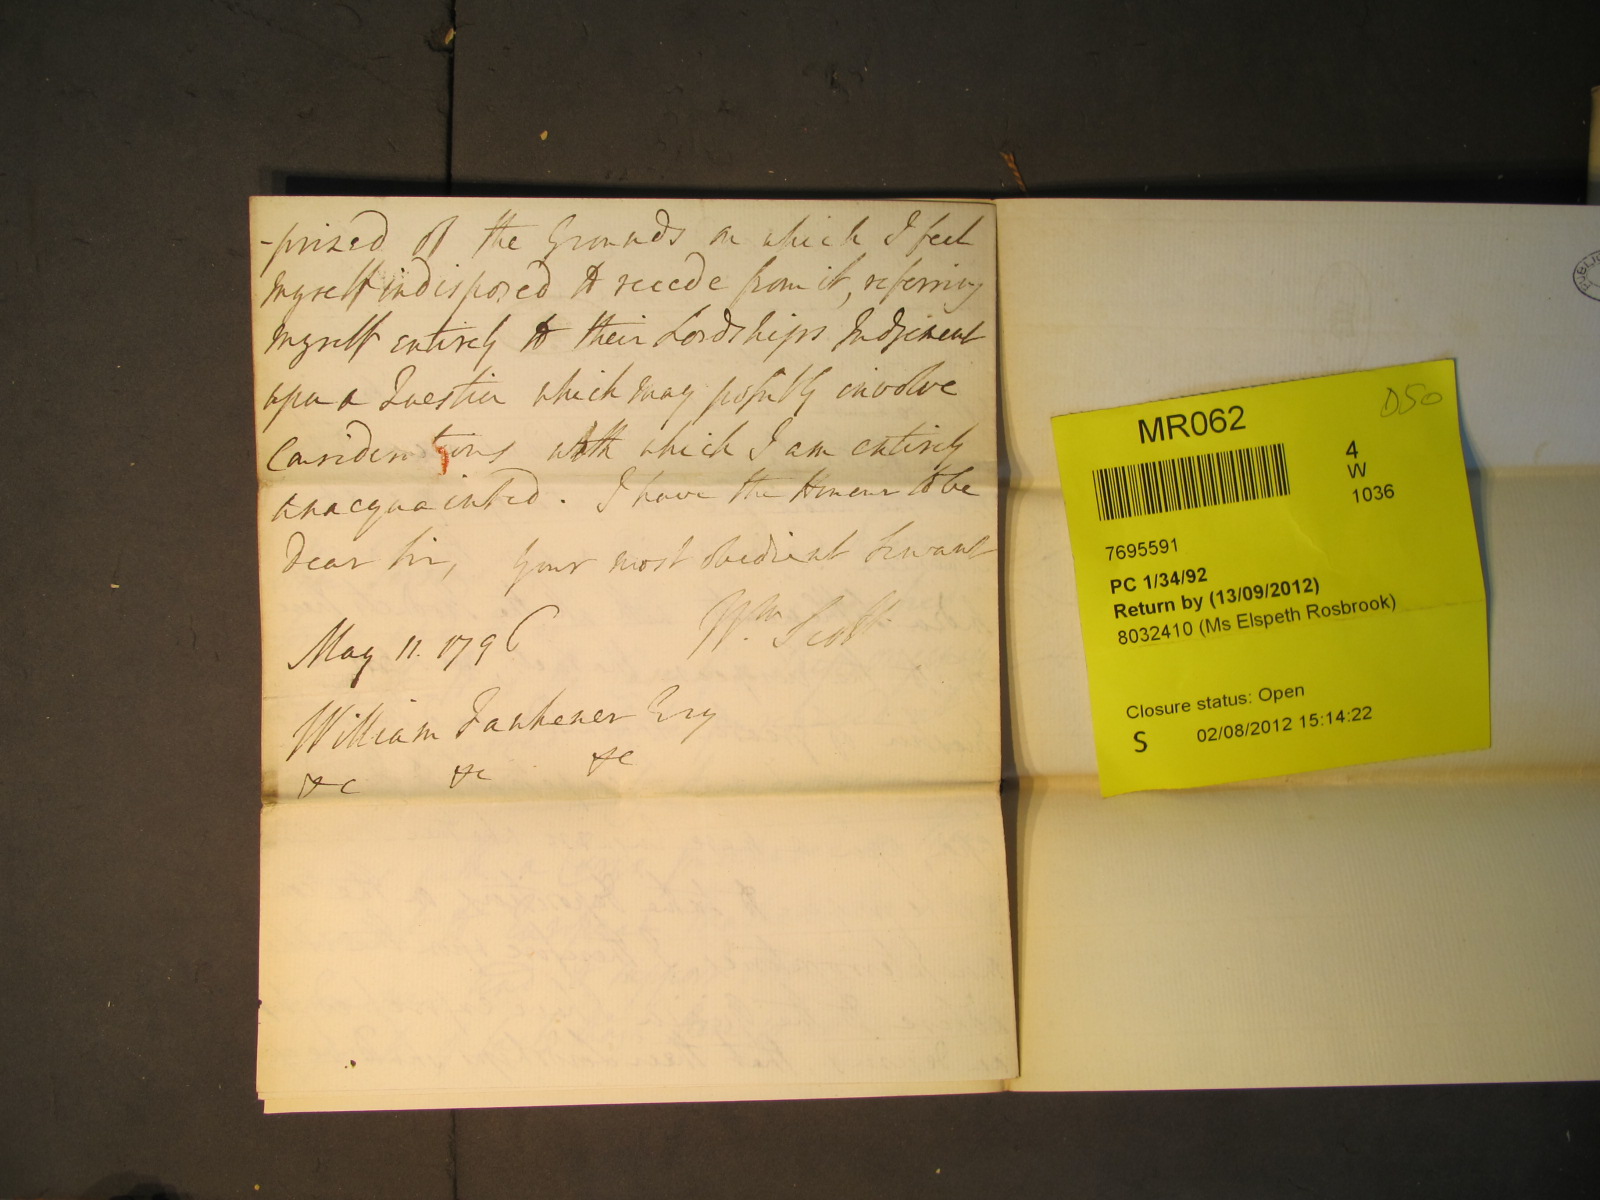 -prized of the Grounds on which I feel
myself indisposed to recede from it, referring
myself entirely to their Lordships Judgment
upon a Question which may possibly involve
Considerations with which I am entirely
unacquainted. I have the Honour to be
Dear Sir, your most obedient Servant
Wm Scott
May 11. 1796
William Faukener Esq
&c &c &c
D50
MR062
4
W
1036
7695591
PC 1/34/92
Return by (13/09/2012)
8032410 (Ms Elspeth Rosbrook)
Closure status: Open
S 02/08/2012 15:14:22